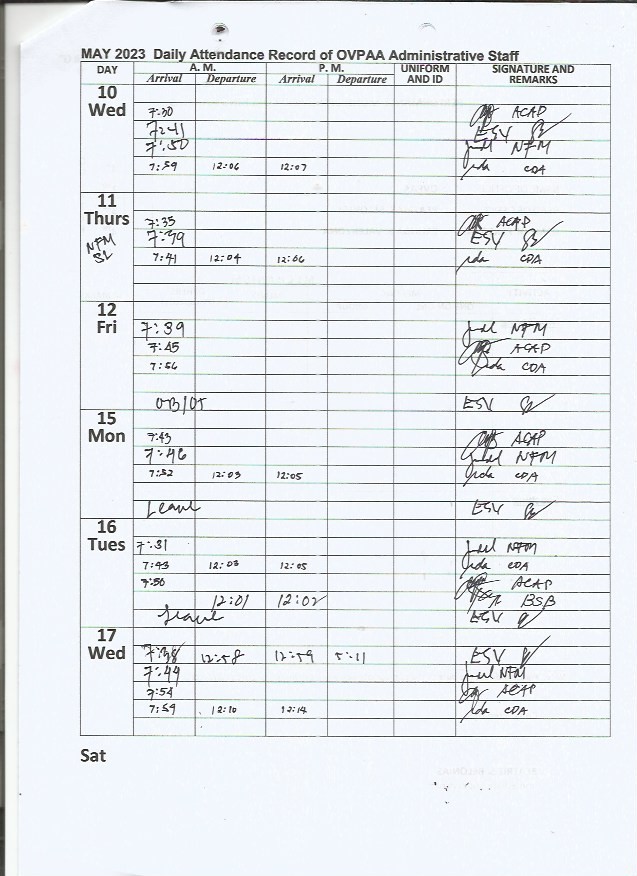 MAY 2023 Daily Attendance Record of OVPAA Administrative Staff
DAY A. M. P. M. UNIFORM AND ID SIGNATURE AND REMARKS
Arrival Departure Arrival Departure
10 Wed
7:30 ACAP
7:41 ESV
7:50 NFM
7:59 12:06 12:07 CDA
11 Thurs
NFM SL
7:35 ACAP
7:39 ESV
7:41 12:04 12:06 CDA
12 Fri
7:39 NFM
7:45 ACAP
7:56 CDA
OB/OT ESV
15 Mon
7:43 ACAP
7:46 NFM
7:52 12:03 12:05 CDA
Leave ESV
16 Tues
7:31 NFM
7:43 12:03 12:05 CDA
7:50 ACAP
12:01 12:02 BSB
Leave ESV
17 Wed
7:38 12:58 12:59 5:11 ESV
7:44 NFM
7:54 ACAP
7:59 12:10 12:14 CDA
Sat